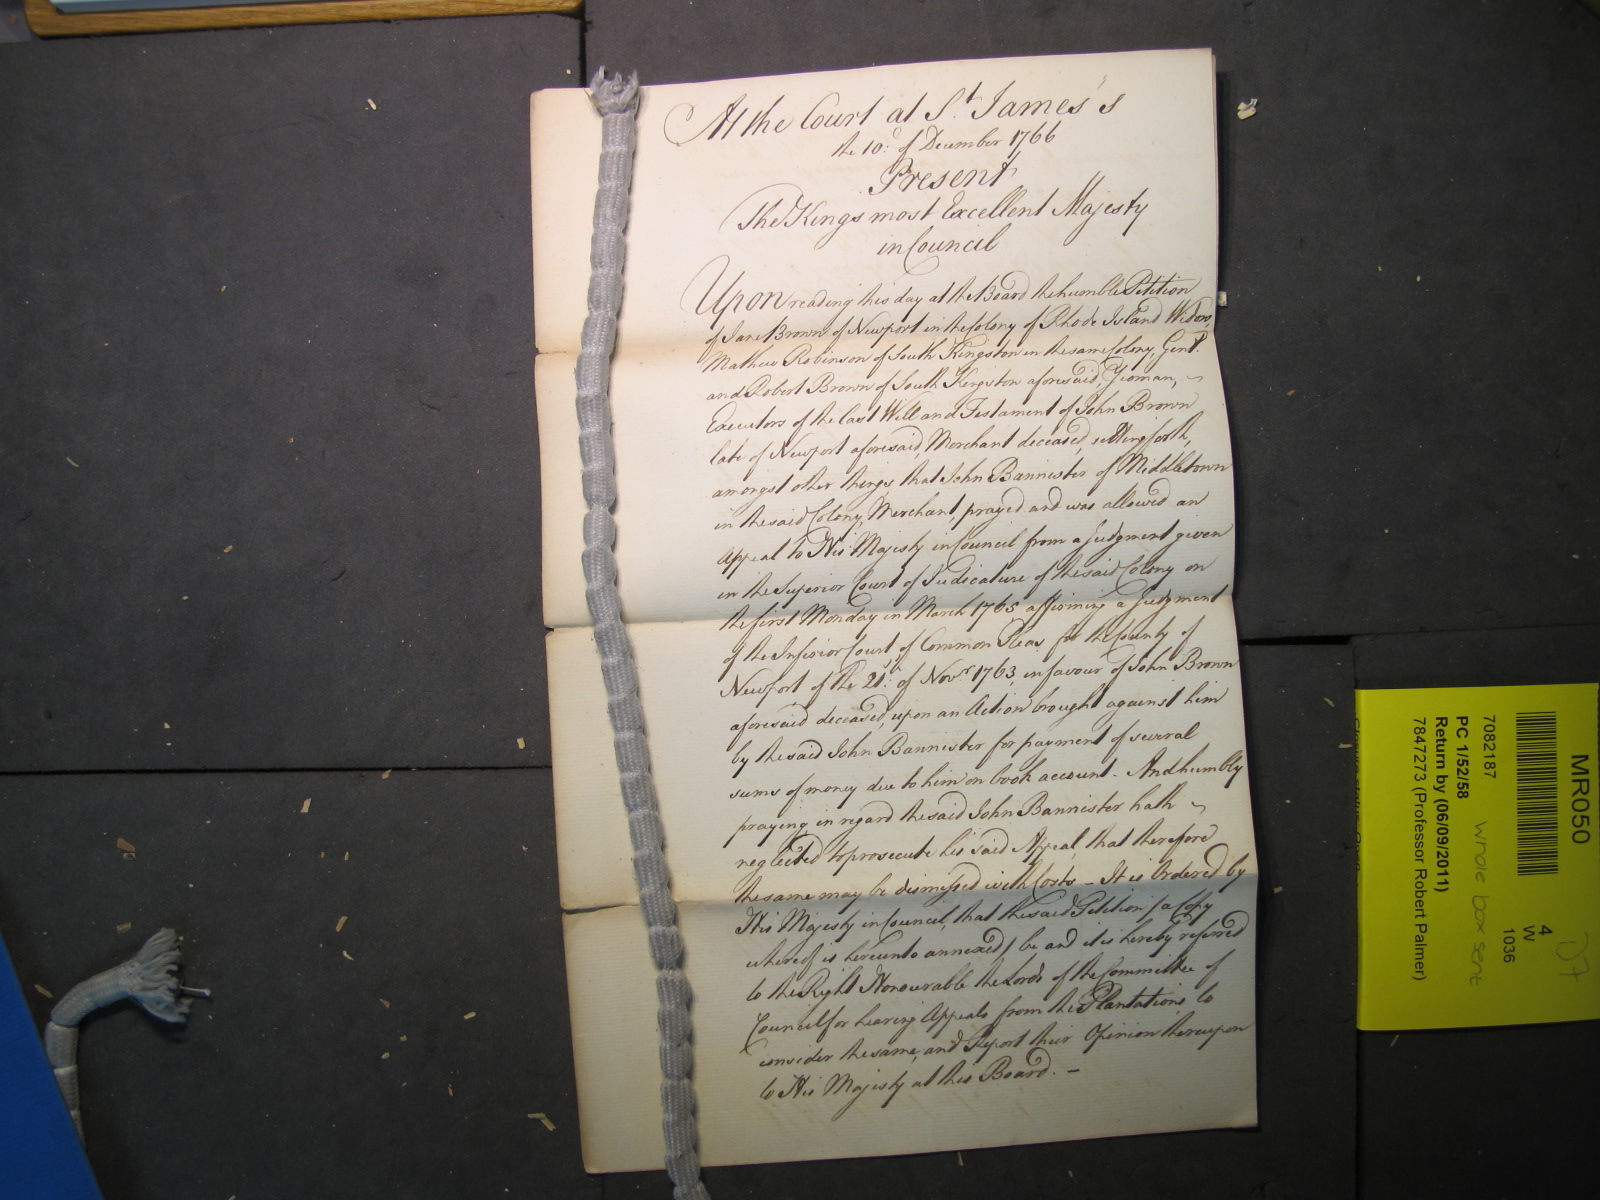 At the Court at St. James's
the 10th of December 1766
Present
The Kings most Excellent Majesty
in Council
Upon reading this day at the Board the humble Petition
of Jane Brown of Newport in the Colony of Rhode Island Widow,
Mathew Robinson of South Kingston in the same Colony, Gent.
and Robert Brown of South Kingston aforesaid, Yeoman,
Executors of the last Will and Testament of John Brown
late of Newport aforesaid, Merchant deceased, setting forth,
amongst other things that John Bannister of Middletown
in the said Colony, Merchant, prayed and was allowed an
Appeal to His Majesty in Council from a Judgment given
in the Superior Court of Judicature of the said Colony on
the first Monday in March 1765 affirming a Judgment
of the Inferior Court of Common Pleas for the County of
Newport of the 21st of Novr. 1763, in favour of John Brown
aforesaid deceased, upon an Action brought against him
by the said John Bannister for payment of several
sums of money due to him on book account. And humbly
praying in regard the said John Bannister hath
neglected to prosecute his said Appeal, that therefore
the same may be dismissed with Costs - It is Ordered by
His Majesty in Council, that the said Petition (a Copy
whereof is hereunto annexed) be and it is hereby referred
to the Right Honourable the Lords of the Committee of
Council for hearing Appeals from the Plantations to
consider the same, and Report their Opinion thereupon
to His Majesty at this Board. -
MR050
4
W
1036
7082187
whole box sent
PC 1/52/58
Return by (06/09/2011)
7847273 (Professor Robert Palmer)